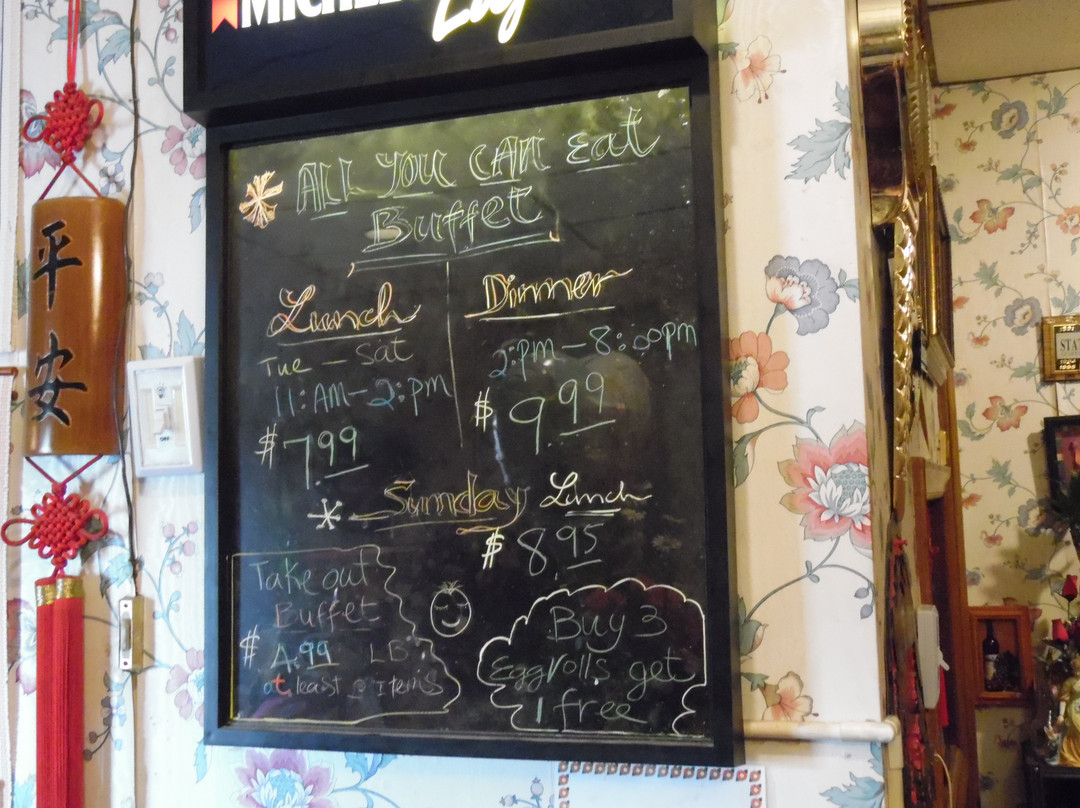 平安
OFF
ALL YOU CAN Eat
Buffet
Lunch
Tue - Sat
11:AM-2:pm
$7.99
Dinner
2:pm-8:00pm
$9.99
Sunday Lunch
$8.95
Take out
Buffet
$4.99 LB
at least Items
Buy 3
Eggrolls get
1 free